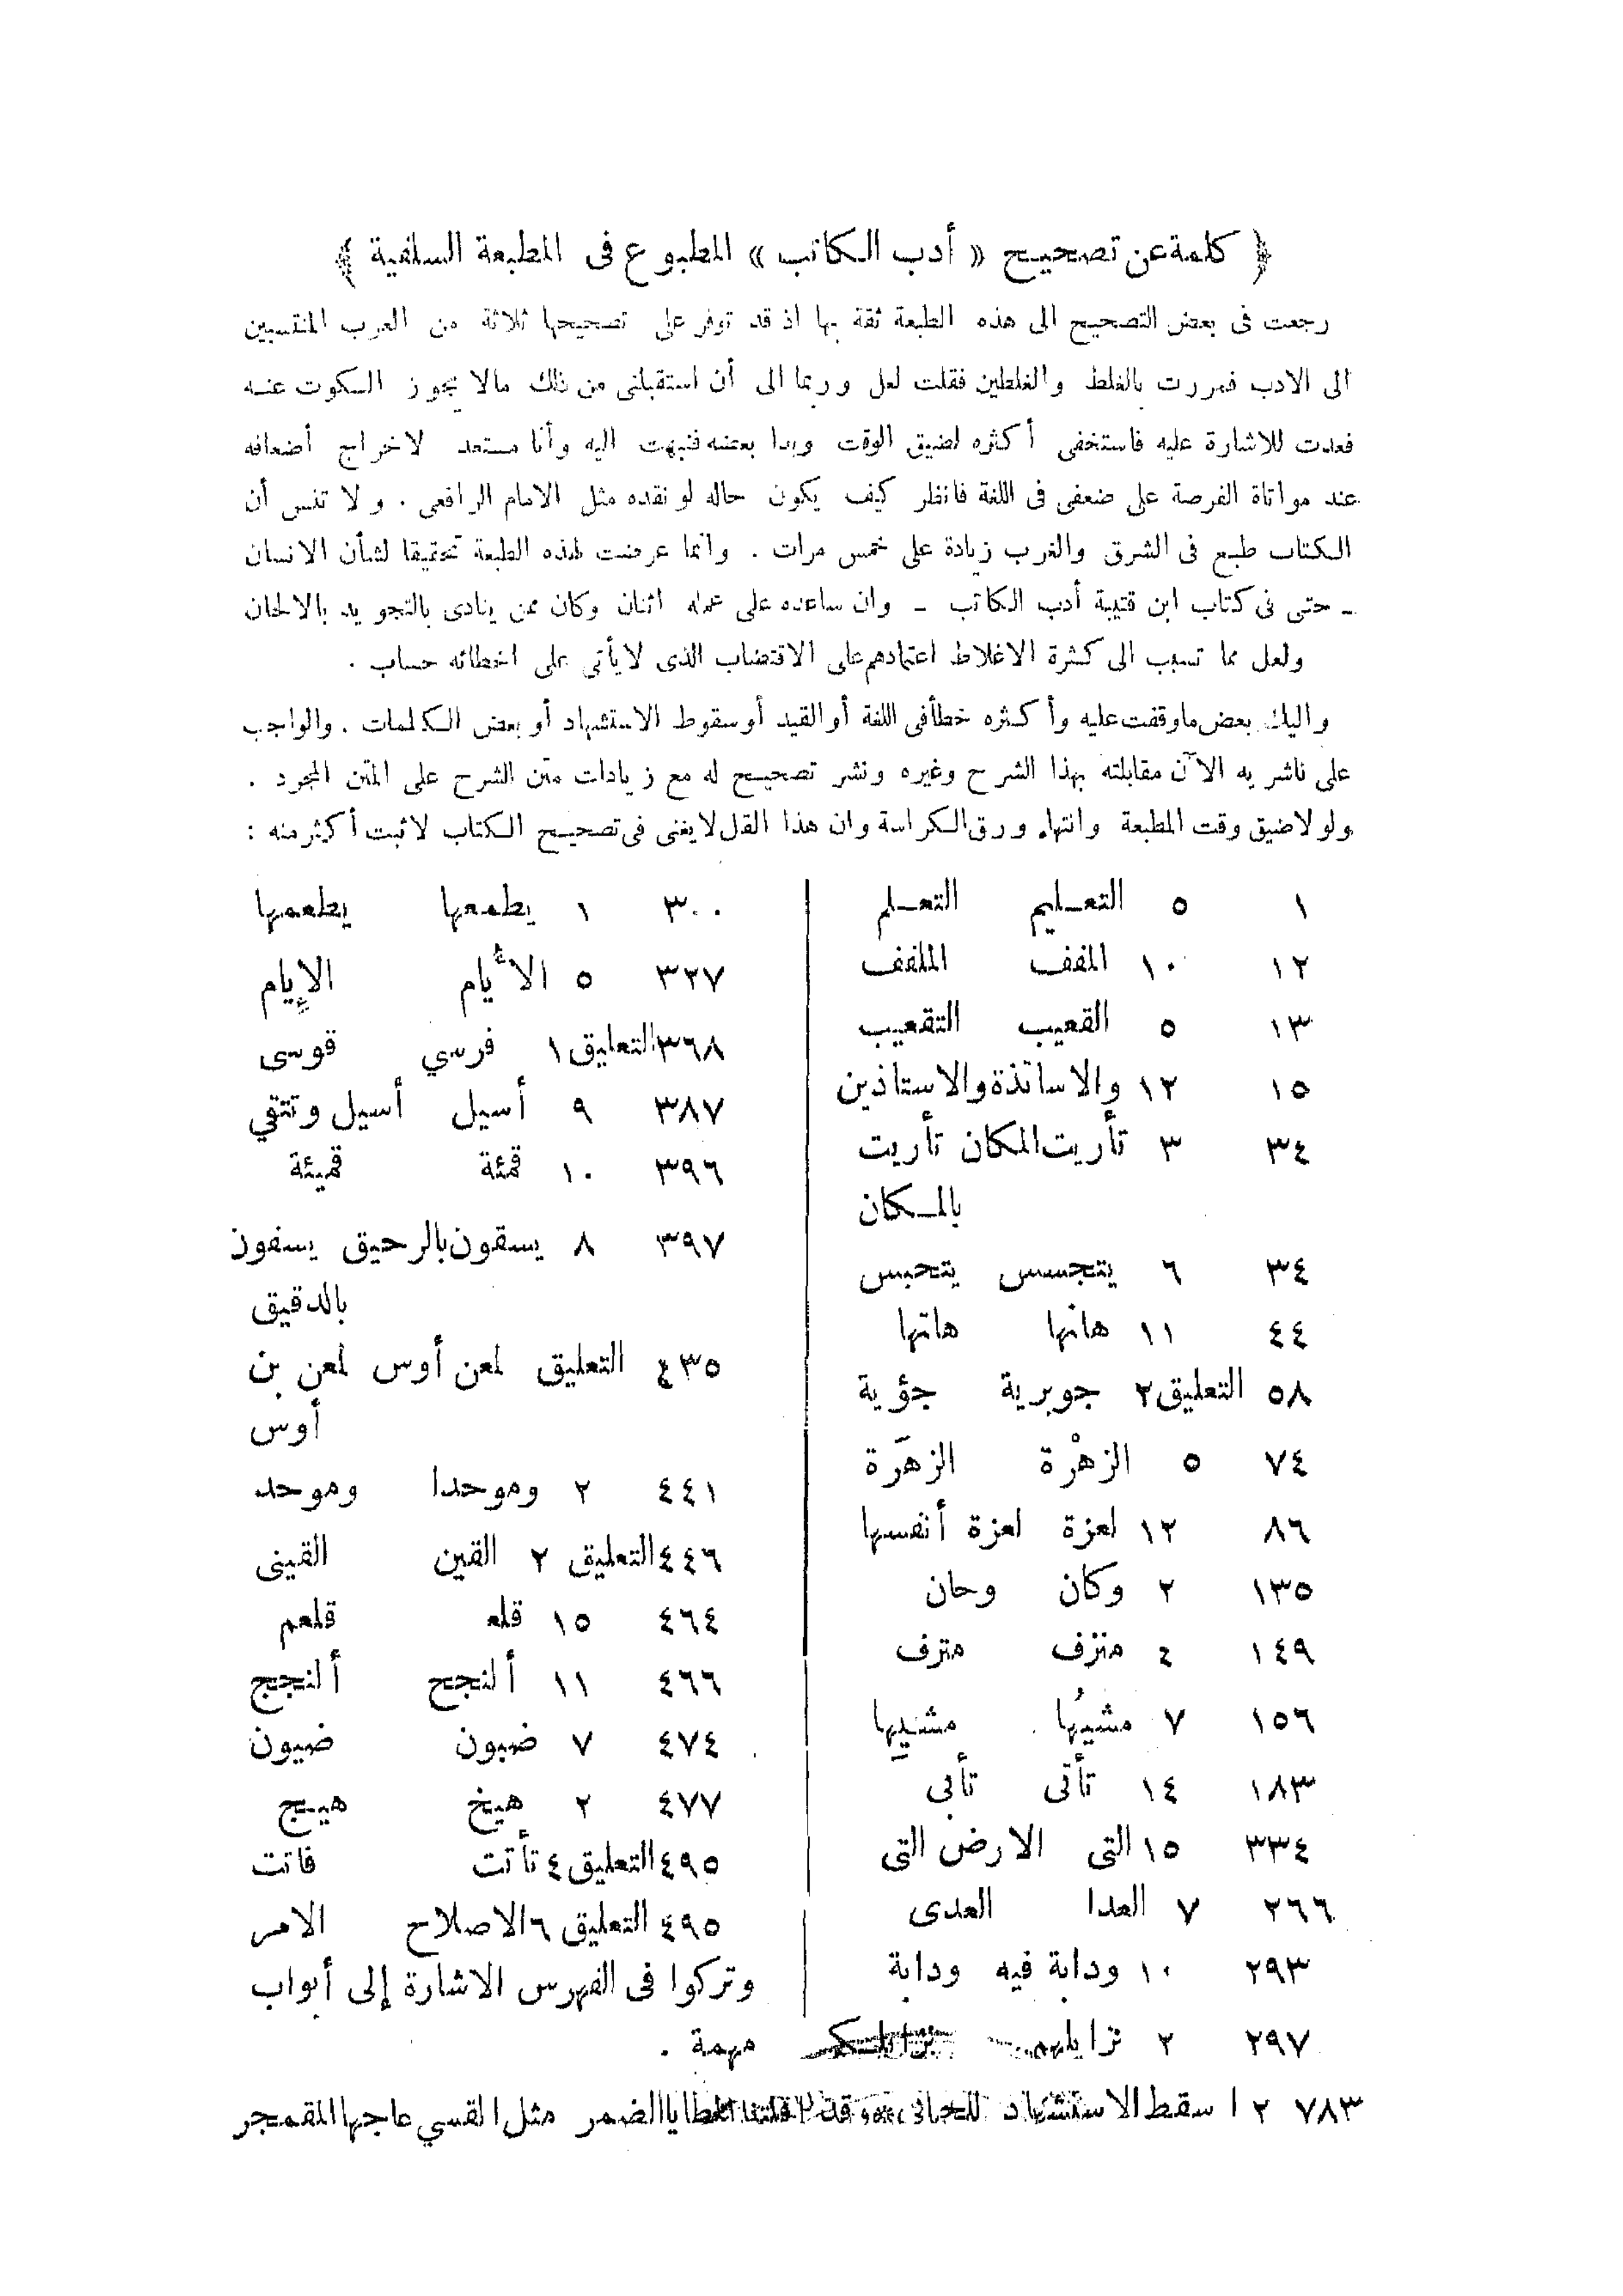 ﴿ كلمة عن تصحيح « أدب الكاتب » المطبوع فى المطبعة السلفية ﴾
رجعت فى بعض التصحيح الى هذه الطبعة ثقة بها اذ قد توفر على تصحيحها ثلاثة من العرب المنتسبين
الى الادب فمررت بالغلط والغلطين فقلت لعل وربما الى أن استقبلنى من ذلك مالا يجوز السكوت عنه
فعدت للاشارة عليه فاستخفى أكثره لضيق الوقت وبدا بعضه فنبهت اليه وأنا مستعد لاخراج أضعافه
عند مواتاة الفرصة على ضعفى فى اللغة فانظر كيف يكون حاله لو نقده مثل الامام الرافعى . ولا تنس أن
الكتاب طبع فى الشرق والغرب زيادة على خمس مرات . وانما عرضت لهذه الطبعة تحقيقا لشأن الانسان
ـ حتى فى كتاب ابن قتيبة أدب الكاتب ـ وان ساعده على عمله اثنان وكان ممن ينادى بالتجويد بالالحان
ولعل مما تسبب الى كثرة الاغلاط اعتمادهم على الاقتضاب الذى لا يأتى على اخطائه حساب .
واليك بعض ماوقفت عليه وأكثره خطأ فى اللغة أو القيد أو سقوط الاستشهاد أو بعض الكلمات . والواجب
على ناشريه الآن مقابلته بهذا الشرح وغيره ونشر تصحيح له مع زيادات متن الشرح على المتن المجرد .
ولولا ضيق وقت المطبعة وانتهاء ورق الكراسة وان هذا القل لا يغنى فى تصحيح الكتاب لاثبت أكثر منه :
١ ٥ التعليم التعلم
١٢ ١٠ المفف الملفف
١٣ ٥ القعيب التقعيب
١٥ ١٢ والاساتذة والاستاذين
٣٤ ٣ تأريت المكان تأريت
بالمكان
٣٤ ٦ يتجسس يتحبس
٤٤ ١١ هانها هاتها
٥٨ التعليق ٢ جوبرية جؤية
٧٤ ٥ الزهْرة الزهَرة
٨٦ ١٢ لعزة لعزة أنفسها
١٣٥ ٢ وكان وحان
١٤٩ ٤ منزف مترف
١٥٦ ٧ مشيُها مشيِها
١٨٣ ١٤ تأتى تأبى
٣٣٤ ١٥ التى الارض التى
٢٦٦ ٧ العدا العدى
٢٩٣ ١٠ ودابة فيه ودابة
٢٩٧ ٢ تزايلهم
٣٠٠ ١ يطمعها يطعمها
٣٢٧ ٥ الأيام الإيام
٣٦٨ التعليق ١ فرسي قوسى
٣٨٧ ٩ أسيل أسيل وتتقي
٣٩٦ ١٠ قمئة قميئة
٣٩٧ ٨ يسقون بالرحيق يسفون
بالدقيق
٤٣٥ التعليق لمعن أوس لمعن بن
أوس
٤٤١ ٢ وموحدا وموحد
٤٤٦ التعليق ٢ القين القينى
٤٦٤ ١٥ قلع قلعم
٤٦٦ ١١ ألنجح ألنجج
٤٧٤ ٧ ضبون ضيون
٤٧٧ ٢ هيخ هيج
٤٩٥ التعليق ٤ تأتت فاتت
٤٩٥ التعليق ٦ الاصلاح الامر
وتركوا فى الفهرس الاشارة إلى أبواب
مهمة .
٧٨٣ ٢ ا سقط الاستشهاد المطايا الضمر مثل القسي عاجها المقمجر